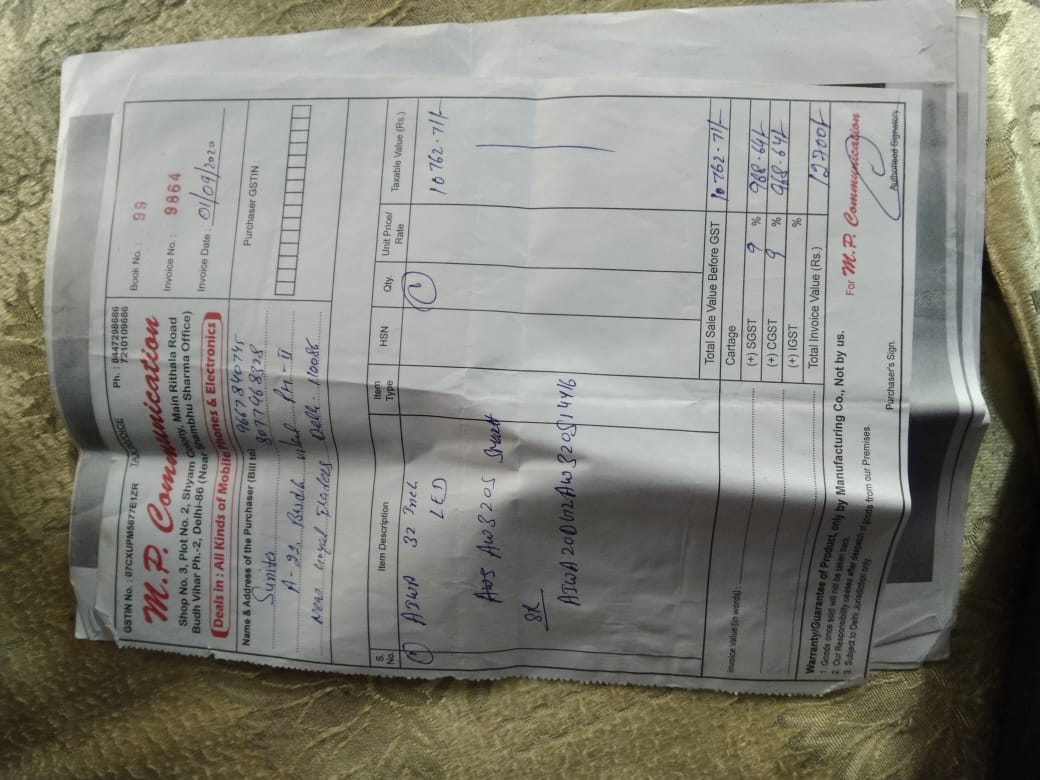 GSTIN No. : 07CXUPM5677E1ZR TAX INVOICE Ph. : 8447298686
7210109686
M.P. Communication
Shop No. 3, Plot No. 2, Shyam Colony, Main Rithala Road
Budh Vihar Ph.-2, Delhi-86 (Near Shambhu Sharma Office)
Deals in : All Kinds of Mobile Phones & Electronics
Book No. : 99
Invoice No. : 9864
Invoice Date : 01/09/2020
Name & Address of the Purchaser (Bill to) 9667840745
Sunita
A-22 Budh Vihar Ph-II
New Goyal Traders Delhi-110086
Purchaser GSTIN :
S. No. Item Description Item Type HSN Qty. Unit Price/ Rate Taxable Value (Rs.)
1 AIWA 32 Inch 1 10762.71/-
LED
AW320S Smart
SR
AIWA20062AW320S1446
Total Sale Value Before GST 10762.71/-
Cartage
(+) SGST 9 % 968.64/-
(+) CGST 9 % 968.64/-
(+) IGST %
Total Invoice Value (Rs.) 12700/-
Invoice Value (in words) :
Warranty/Guarantee of Product, only by Manufacturing Co., Not by us.
1. Goods once sold will not be taken back.
2. Our Responsibility ceases after despatch of goods from our Premises.
3. Subject to Delhi Jurisdiction only.
Purchaser's Sign.
For M.P. Communication
Authorised Signatory